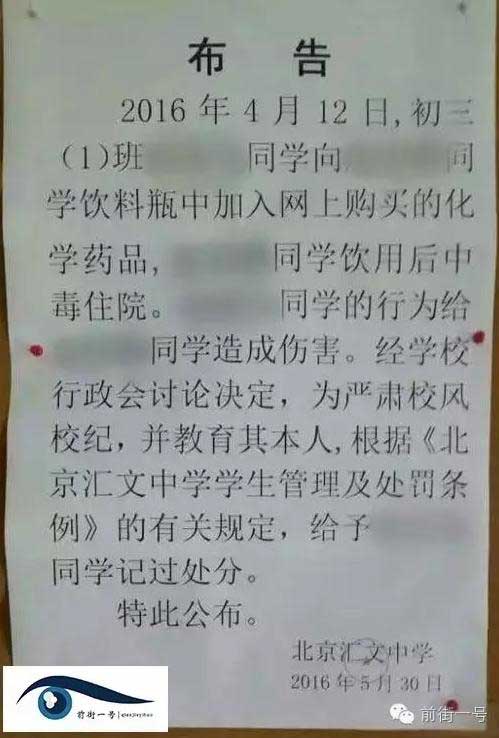 布 告
2016年4月12日,初三
(1)班 同学向 同
学饮料瓶中加入网上购买的化
学药品, 同学饮用后中
毒住院。 同学的行为给
同学造成伤害。经学校
行政会讨论决定，为严肃校风
校纪,并教育其本人,根据《北
京汇文中学学生管理及处罚条
例》的有关规定，给予
同学记过处分。
特此公布。
北京汇文中学
2016年5月30日
前街一号|qianjieyihao
前街一号